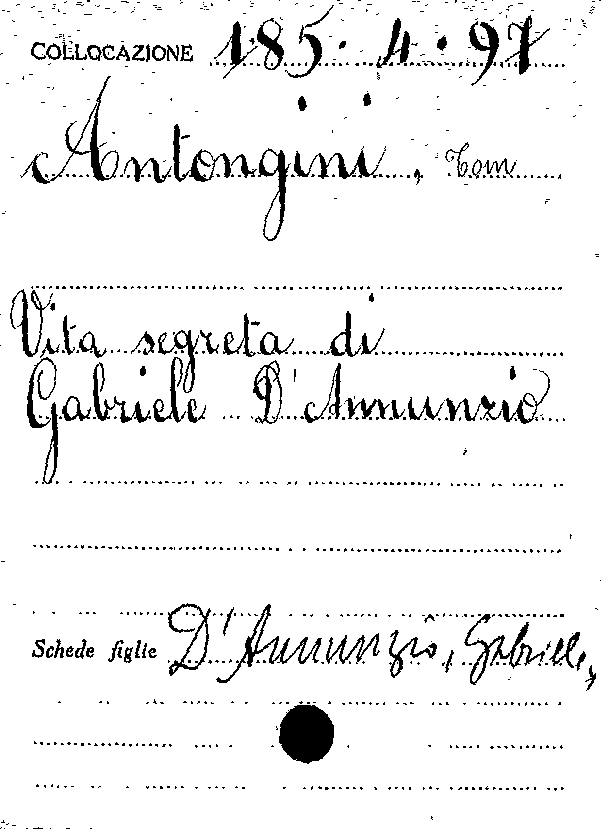 COLLOCAZIONE 185. 4. 97
Antongini, Tom
Vita segreta di
Gabriele D'Annunzio
Schede figlie D'Annunzio, Gabriele,